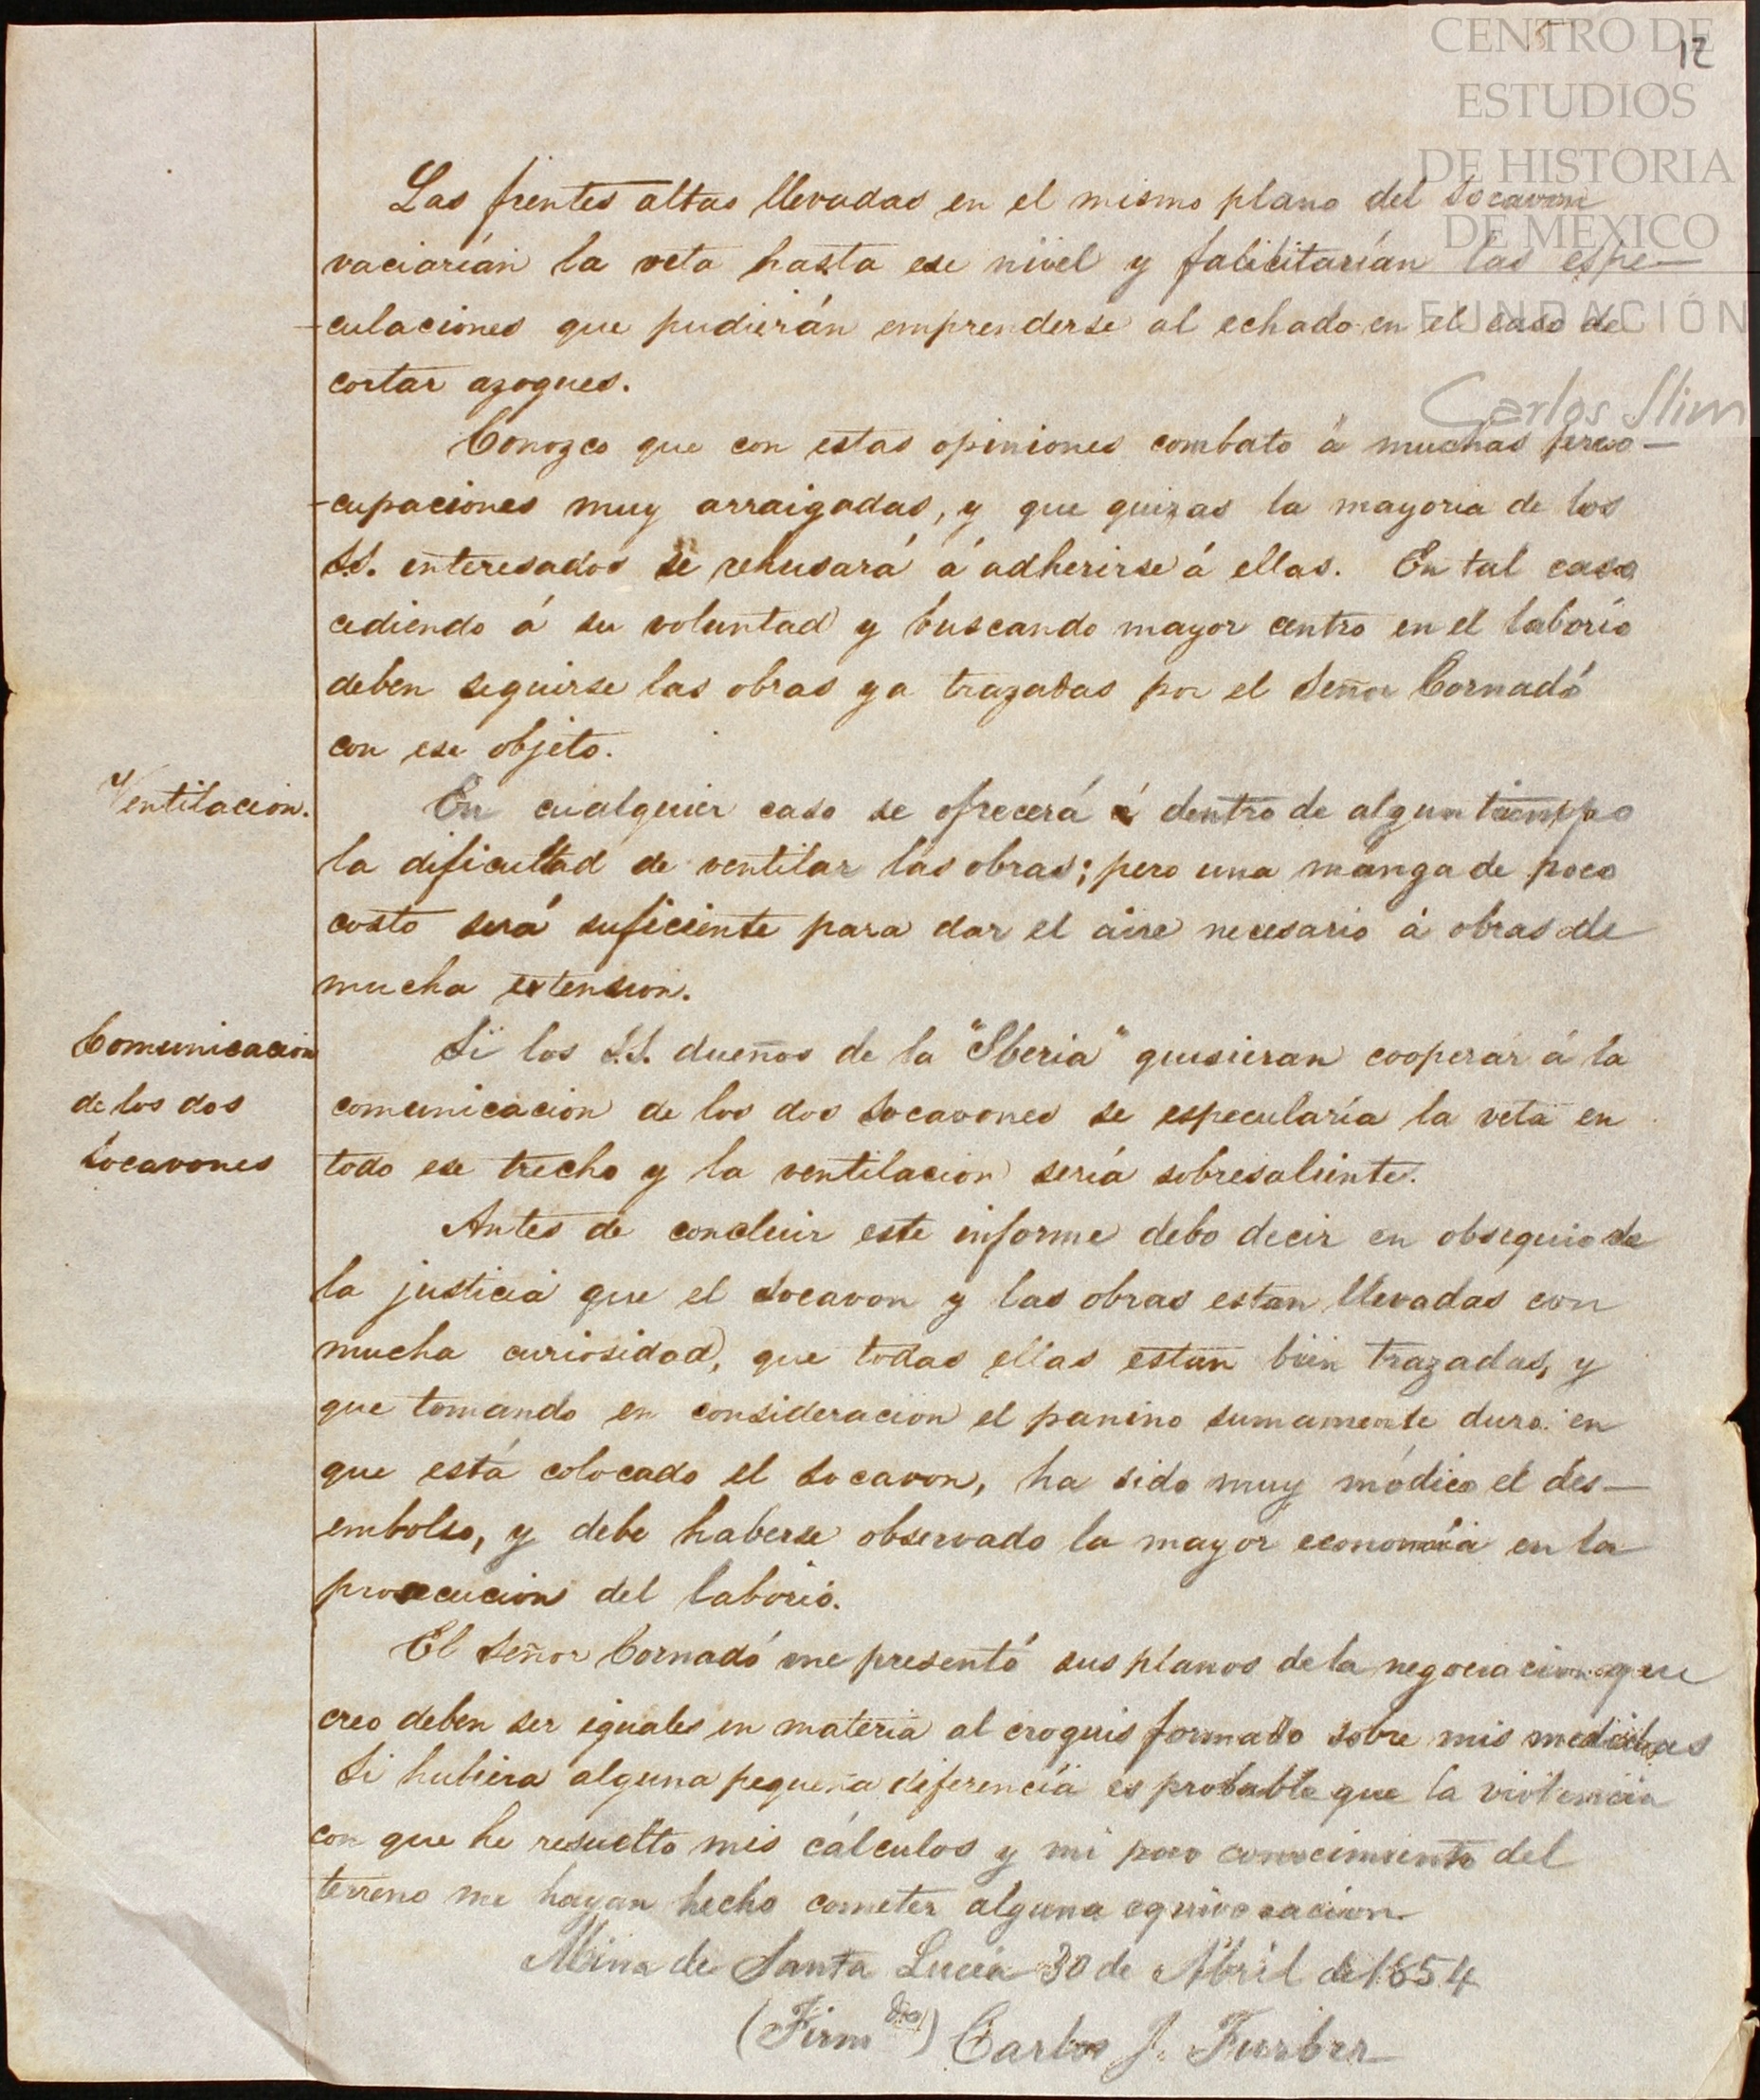 CENTRO DE
ESTUDIOS
DE HISTORIA
DE MEXICO
FUNDACIÓN
Carlos Slim
12
Las frentes altas llevadas en el mismo plano del Socavon
vaciarían la veta hasta ese nivel y falicitarían las espe—
-culaciones que pudierán emprenderse al echado en el caso de
cortar azogues.
Conozco que con estas opiniones combato á muchas preo—
-cupaciones muy arraigadas, y que quizas la mayoria de los
S.S. interesados se rehusará á adherirse á ellas. En tal caso
cediendo á su voluntad y buscando mayor centro en el laborío
deben seguirse las obras ya trazadas por el Señor Cornadó
con ese objeto.
Ventilacion.
En cualquier caso se ofrecerá á dentro de algun tiempo
la dificultad de ventilar las obras; pero una manga de poco
costo será suficiente para dar el aire necesario á obras de
mucha extension.
Comunicacion
de los dos
Socavones
Si los S.S. dueños de la "Iberia" quisieran cooperar á la
comunicacion de los dos Socavones se especularía la veta en
todo ese trecho y la ventilacion sería sobresaliente.
Antes de concluir este informe debo decir en obsequio de
la justicia que el Socavon y las obras estan llevadas con
mucha curiosidad, que todas ellas estan bien trazadas, y
que tomando en consideracion el panino sumamente duro en
que está colocado el Socavon, ha sido muy módico el des—
embolso, y debe haberse observado la mayor economía en la
prosecucion del laborio.
El Señor Cornadó me presentó sus planos de la negociacion que
creo deben ser iguales en materia al croquis formado sobre mis medidas
Si hubiera alguna pequeña diferencia es probable que la violencia
con que he resuelto mis cálculos y mi poco conocimiento del
terreno me hayan hecho cometer alguna equivocacion.
Mina de Santa Lucia 30 de Abril de 1854
(Firmdo) Carlos J. Furber